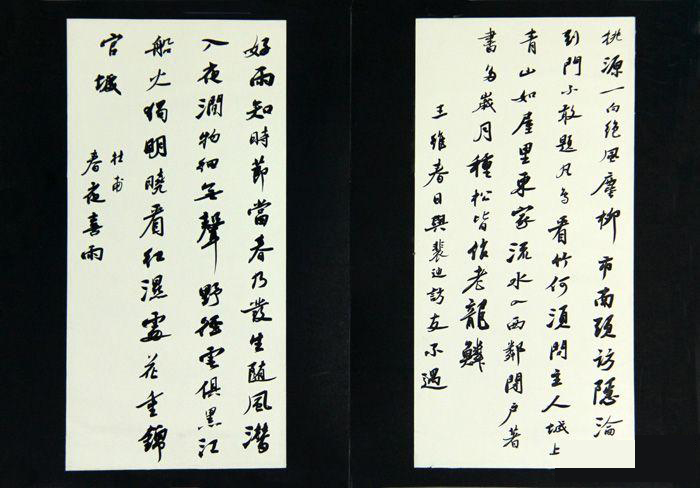 桃源一向絕風塵柳市南頭訪隱淪
到門不敢題凡鳥看竹何須問主人城上
青山如屋里東家流水入西鄰閉戶著
書多歲月種松皆作老龍鱗
王維春日與裴迪訪友不遇
好雨知時節當春乃發生隨風潛
入夜潤物細無聲野徑雲俱黑江
船火獨明曉看紅濕處花重錦
官城
杜甫
春夜喜雨